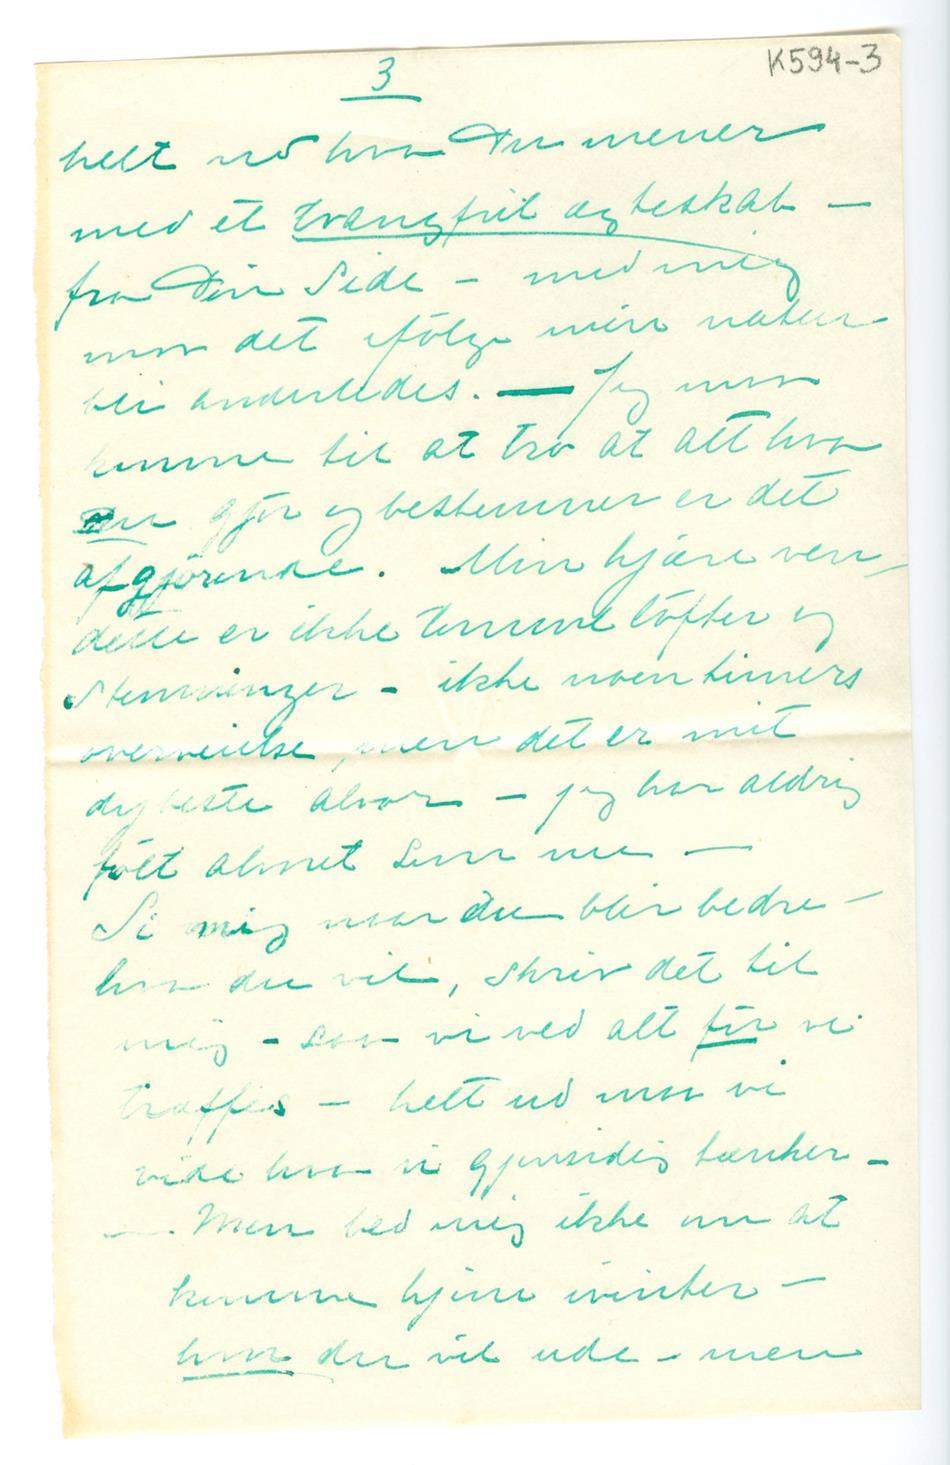 K594-3
3
helt ud hva Du mener
med et tvangfrit ægteskab —
fra Din Side – med mig
maa det ifölge min natur
bli anderledes. — Jeg maa
komme til at tro at alt hva
Du gjør og bestemmer er det
afgjørende. Min kjære ven,
dette er ikke tomme löfter og
Stemninger – ikke noen timers
overveielse, men det er mit
dybeste alvor – jeg har aldrig
fölt alvoret som nu —
Si mig naar du blir bedre –
hva du vil, skriv det til
mig – saa vi ved alt før vi
træffes – helt ud maa vi
vide hva vi gjensidig tænker –
— Men bed mig ikke om at
komme hjem ivinter –
hvor du vil ude – men